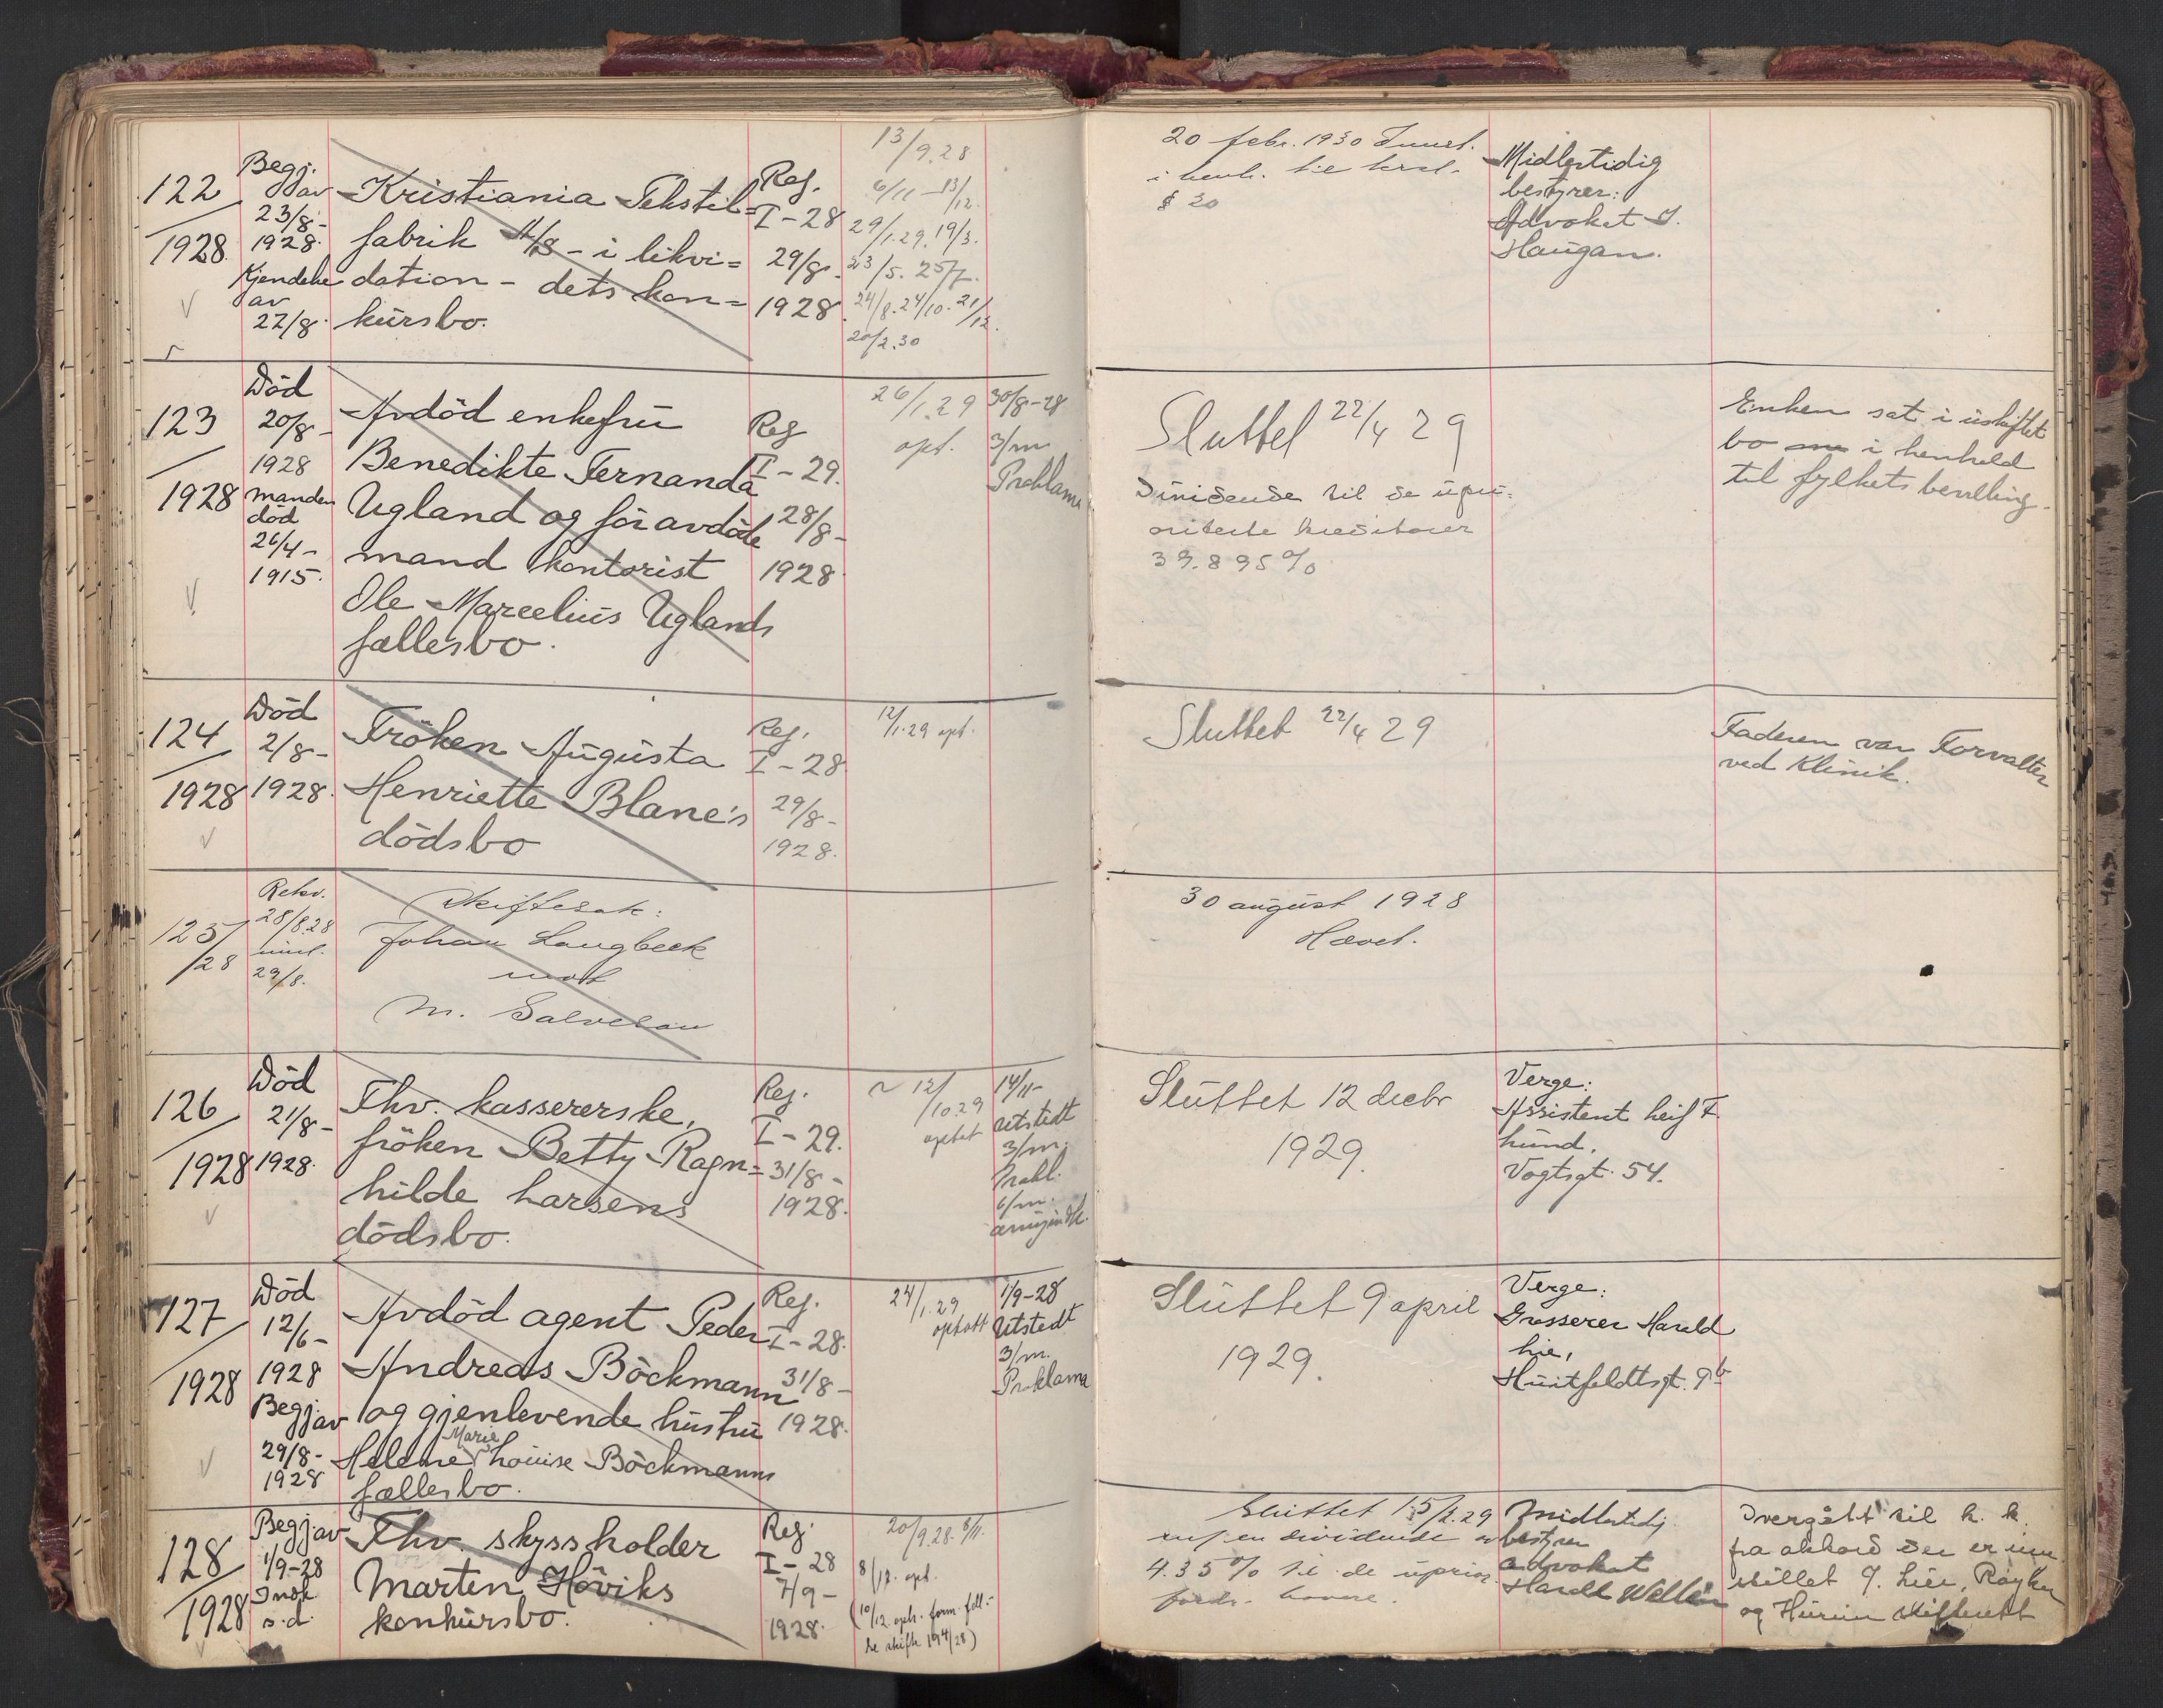 122
1928
Begj.
av
23/8-
1928.
Kjendelse
av
27/8.
Kristiania Tekstil=
fabrik A/S - i likvi=
dation - dets kon=
kursbo.
Reg.
I-28
29/8.
1928.
13/9.28
6/11 - 13/12.
29/1.29. 19/3.
23/5. 25/7.
24/8. 24/10. 21/12.
20/2.30
20 febr. 1930
i henh. til
§ 30
Midlertidig
bestyrer:
Advokat J.
Haugan.
123
1928
Död
20/8-
1928
manden
död
26/4-
1915.
Avdöd enkefru
Benedikte Fernanda
Ugland og foravdöde
mand kontorist
Ole Marcelius Uglands
fællesbo.
Reg
I-29.
28/8-
1928
26/1.29
opt.
30/8-28
3/m
Proklama
Sluttet 22/4 29
Dividende til de upri=
oriterte kreditorer
39.895%
Enken sat i uskiftet
bo i henhold
til fylkets bevilling.
124
1928
Död
2/8-
1928.
Fröken Augusta
Henriette Blanc's
dödsbo
Reg.
I-28
29/8-
1928.
12/1.29 opt.
Sluttet 22/4 29
Faderen var Forvalter
ved Klinik.
125/28
Rekv.
28/8.28
29/8.
Skiftesak:
Johan Langbeck
mot
M. Salvesen
30 august 1928
Hævet.
126
1928
Död
21/8-
1928.
Fhv. kassererske,
fröken Betty Ragn=
hilde Larsens
dödsbo.
Reg.
I-29.
31/8-
1928.
12/10.29
optat
14/11-
Utstedt
3/m.
Prokl.
6/m.
Sluttet 12 decbr
1929.
Verge:
Assistent Leif F.
Lund,
Vogtsgt. 54.
127
1928
Död
12/6-
1928
Begj av
29/8-
1928
Avdöd agent Peder
Andreas Böckmann
og gjenlevende hustru
Marie
Helene Louise Böckmanns
fællesbo.
Reg.
I-28.
31/8-
1928.
24/1.29
optatt
1/9-28
Utstedt
3/m.
Proklama
Sluttet 9 april
1929.
Verge:
Grosserer Harald
Lie,
Huitfeldtsgt. 9b
128
1928
Begj av
1/9-28
s.d.
Fhv. skyssholder
Marten Höviks
konkursbo.
Reg.
I-28
7/9-
1928.
20/9.28. 8/11.
8/12. opt.
(10/12. opt. form. fell.-
se skifte 194/28)
Sluttet 15/2.29
en dividende
4.35% til de uprior.
Midlertidig
bestyrer
advokat
Harald Wellén
Overgått til k. k.
fra akkord
stillet i Lier, Röyken
og Hurum skifterett